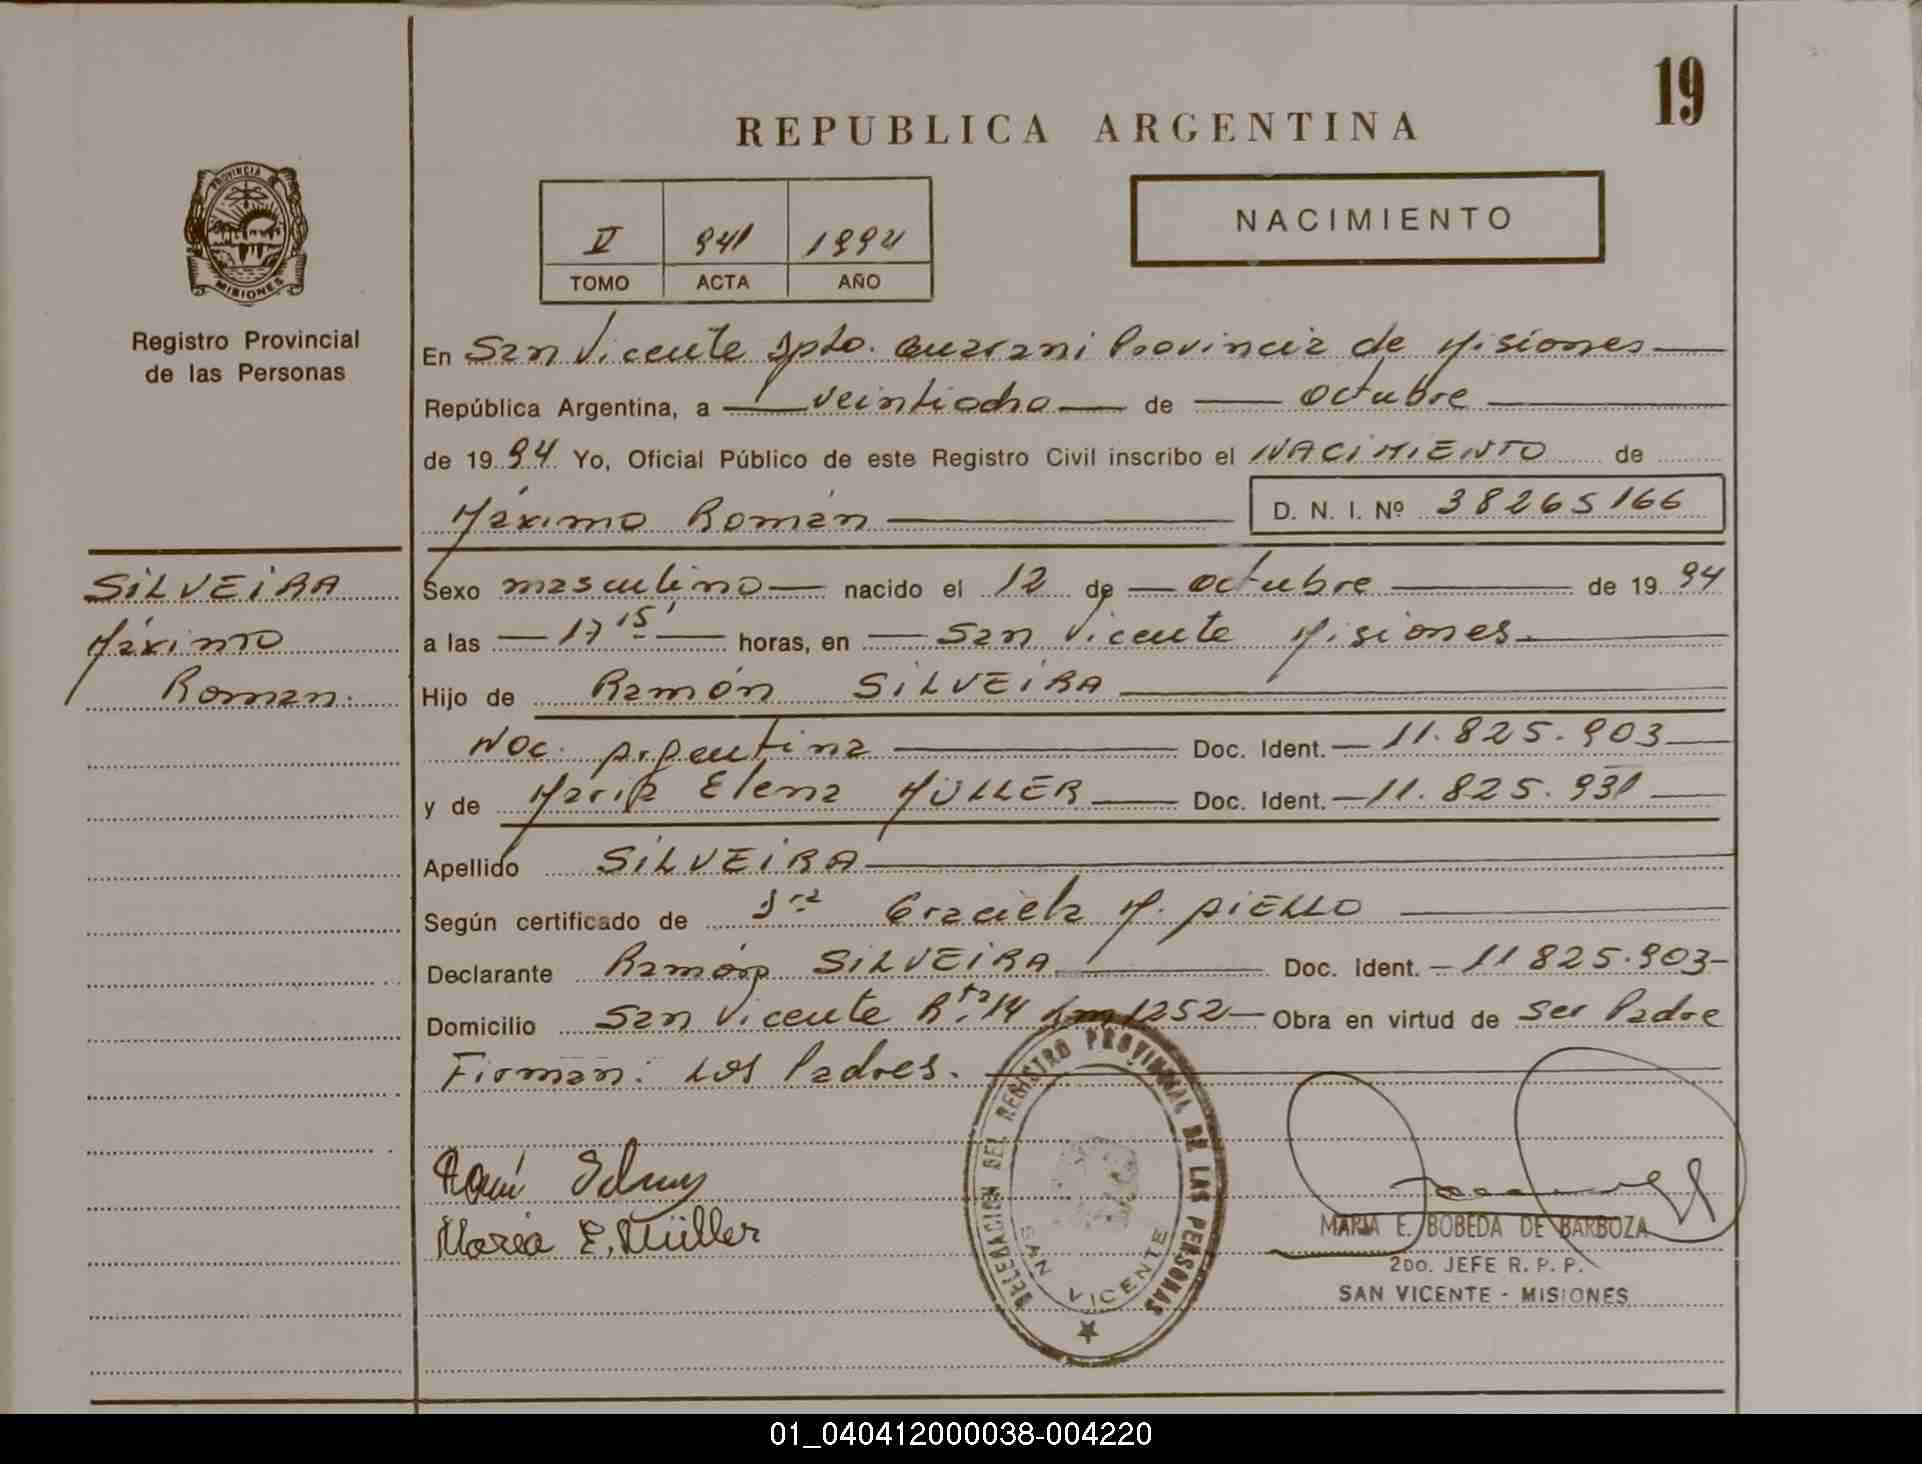 19
REPUBLICA ARGENTINA
PROVINCIA DE
MISIONES
Registro Provincial
de las Personas
V 941 1994
TOMO ACTA AÑO
NACIMIENTO
En San Vicente Dpto. Guaraní Provincia de Misiones
República Argentina, a veintiocho de octubre
de 1994 Yo, Oficial Público de este Registro Civil inscribo el NACIMIENTO de
Máximo Román D. N. I. Nº 38265166
SILVEIRA
Máximo
Roman.
Sexo masculino nacido el 12 de octubre de 1994
a las 17 15' horas, en San Vicente Misiones.
Hijo de Ramón SILVEIRA
Nac. Argentina Doc. Ident. 11.825.903
y de María Elena MÜLLER Doc. Ident. 11.825.931
Apellido SILVEIRA
Según certificado de Dra Graciela M. AIELLO
Declarante Ramón SILVEIRA Doc. Ident. 11825.903
Domicilio San Vicente Rta. 14 Km 1252 Obra en virtud de ser Padre
Firman: Los Padres.
DELEGACION DEL REGISTRO PROVINCIAL DE LAS PERSONAS
SAN VICENTE
Maria E. Müller
MARIA E. BOBEDA DE BARBOZA
2DO. JEFE R. P. P.
SAN VICENTE - MISIONES
01_040412000038-004220